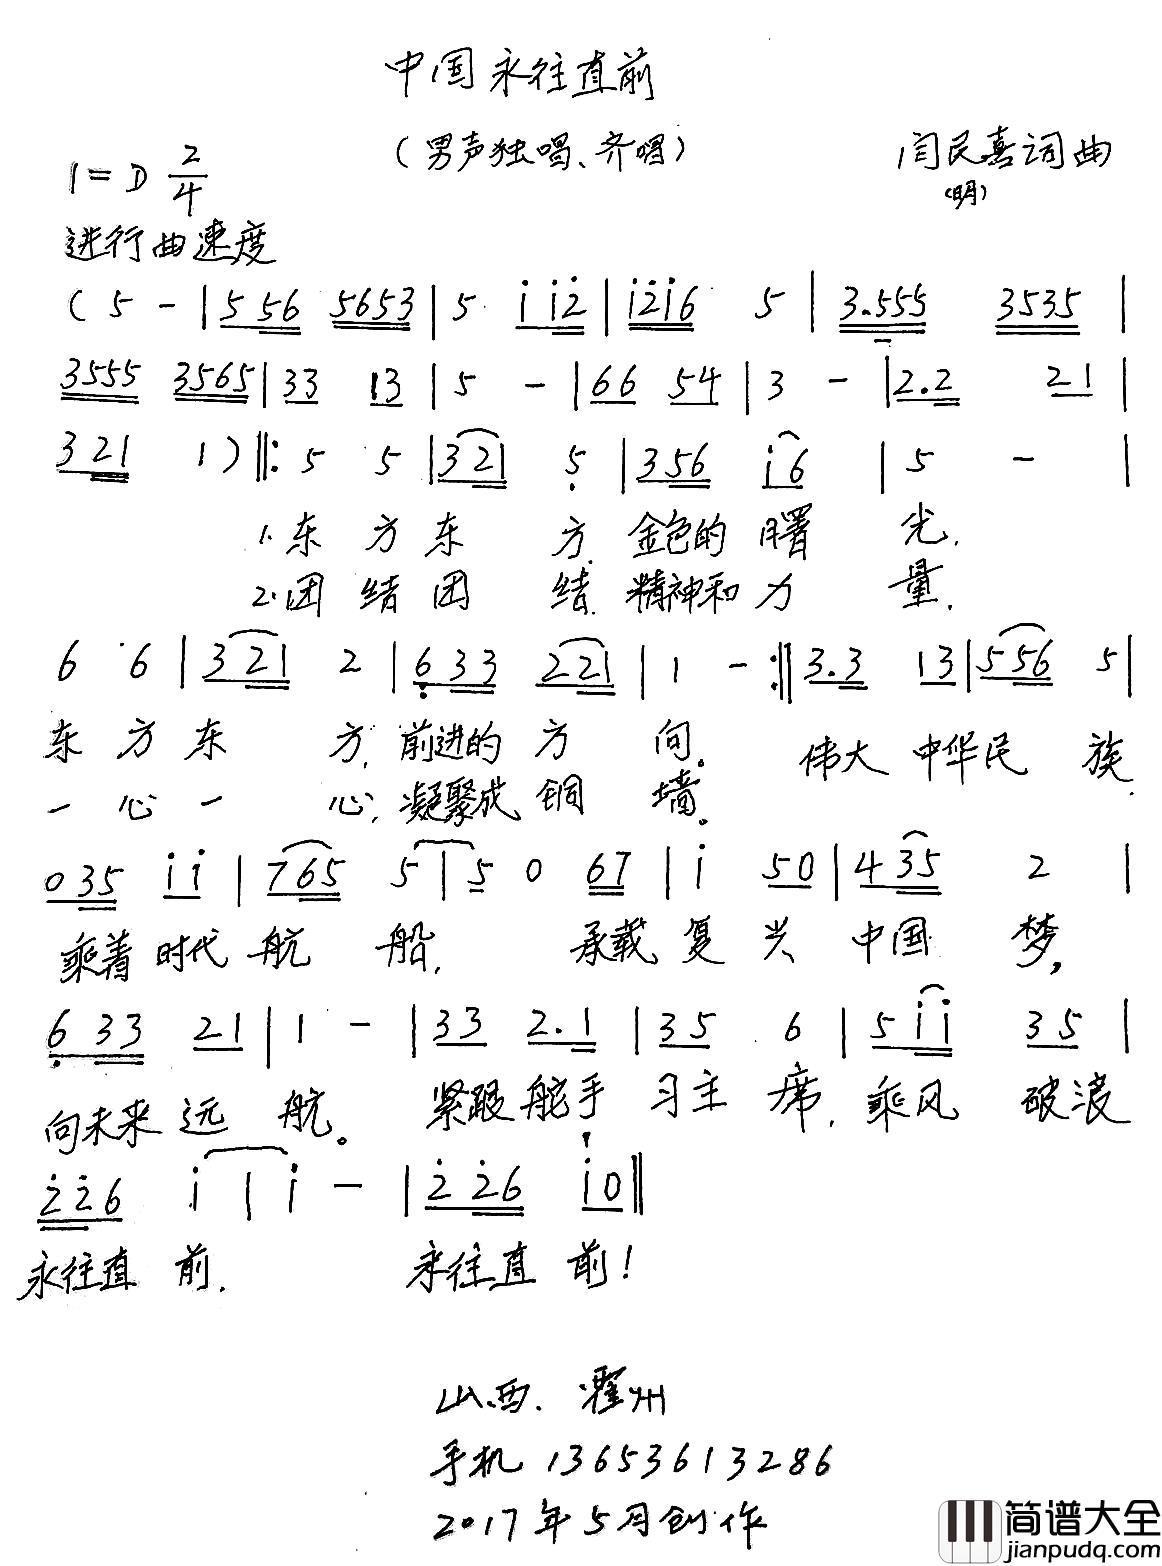 中国永往直前
(男声独唱、齐唱)
闫民喜词曲
(明)
1=D 2/4
进行曲速度
(5 - | 5 56 5653 | 5 i i2 | i2i6 5 | 3.555 3535 |
3555 3565 | 33 13 | 5 - | 66 54 | 3 - | 2.2 21 |
3 21 1) ‖: 5 5 | 3 21 5 | 3 56 i6 | 5 - |
1.东方东方.金色的曙光.
2.团结团结.精神和力量.
6 6 | 3 21 2 | 6 33 2 21 | 1 - :‖ 3.3 13 | 5 56 5 |
东方东方,前进的方向。伟大中华民族.
一心一心,凝聚成铜墙。
0 35 i i | 7 65 5 | 5 0 67 | i 50 | 4 35 2 |
乘着时代航船,承载复兴中国梦,
6 33 21 | 1 - | 33 2.1 | 35 6 | 5 i i 35 |
向未来远航。紧跟舵手习主席,乘风破浪
2 2 6 i | i - | 2 2 6 i 0 ‖
永往直前.永往直前!
山西.霍州
手机 13653613286
2017年5月创作
简谱大全
jianpudq.com